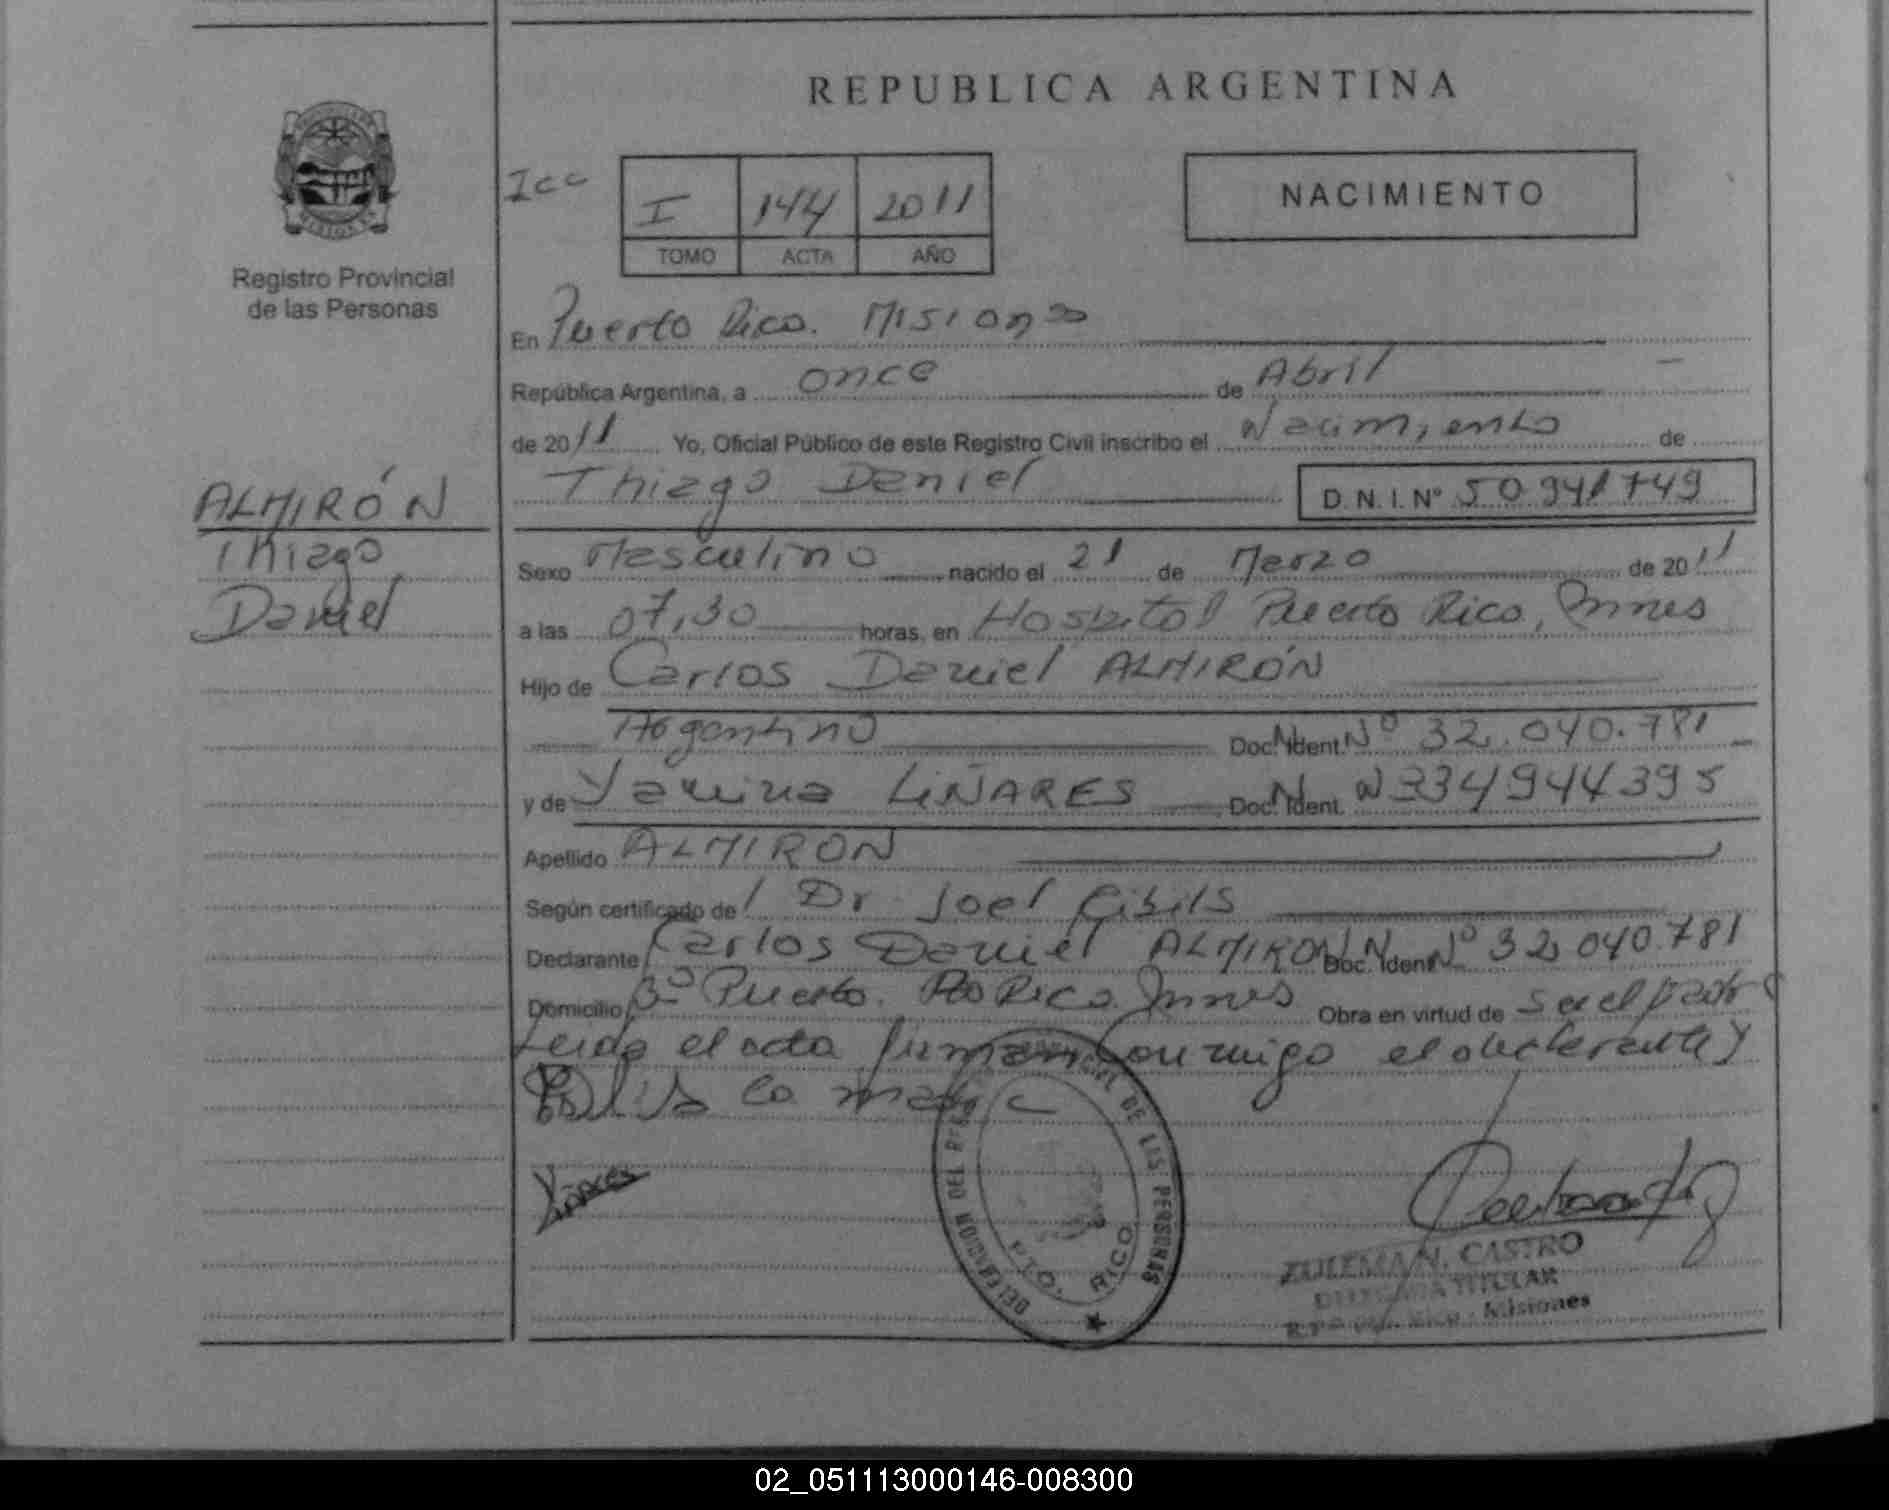 REPUBLICA ARGENTINA
Icc
I 144 2011
TOMO ACTA AÑO
NACIMIENTO
Registro Provincial
de las Personas
En Puerto Rico. Misiones
República Argentina, a once de Abril
de 2011 Yo, Oficial Público de este Registro Civil inscribo el Nacimiento de
Thiago Daniel D.N.I.Nº 50941749
ALMIRÓN
Thiago
Daniel
Sexo Masculino nacido el 21 de Marzo de 2011
a las 07,30 horas, en Hospital Puerto Rico, Mnes
Hijo de Carlos Daniel ALMIRÓN
Argentino Doc. N. Ident. Nº 32.040.781
y de Yanina LIÑARES Doc. N. Ident. Nº 34944395
Apellido ALMIRON
Según certificado de Dr Joel
Declarante Carlos Daniel ALMIRON Doc. N. Ident. Nº 32.040.781
Domicilio Bº Puerto. Pto Rico. Mnes Obra en virtud de ser el padre
Leida el acta firman conmigo el declarante y
la madre
DELEGACION DEL REGISTRO PROVINCIAL DE LAS PERSONAS
PTO. RICO
ZULEMA N. CASTRO
DELEGADA TITULAR
R.P.P. Pto. Rico - Misiones
02_051113000146-008300